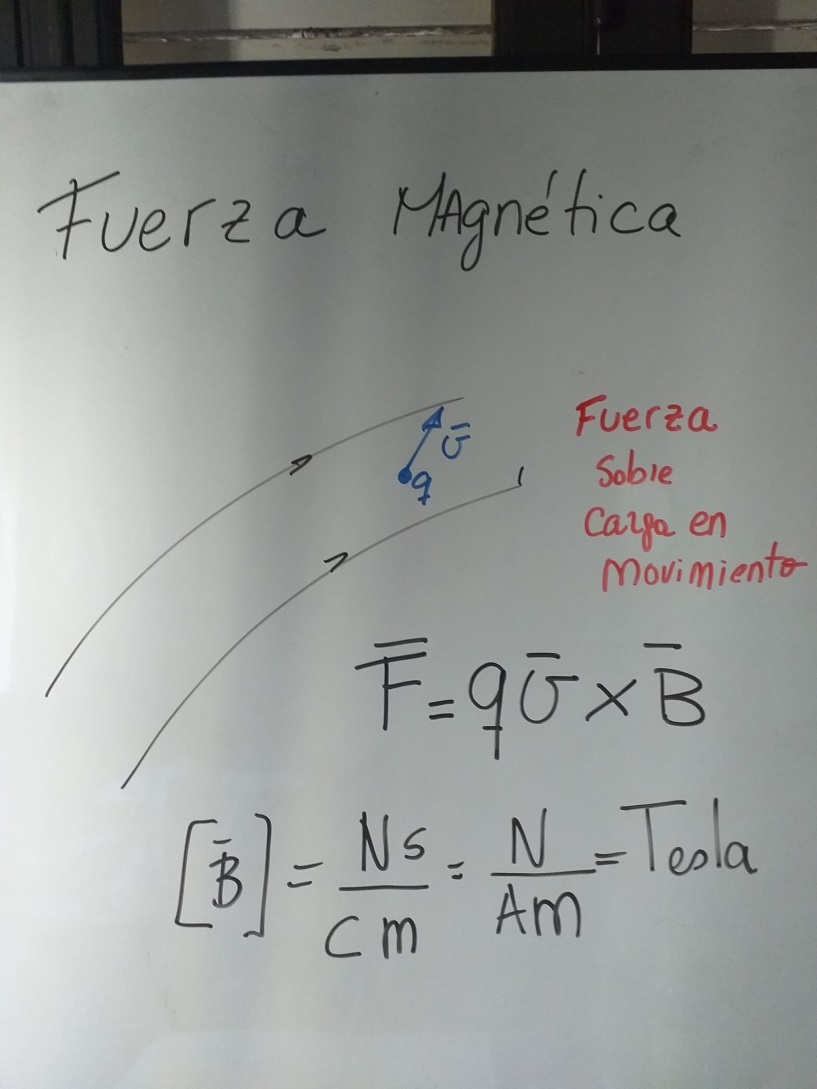 Fuerza MAgnética
v̄
q
Fuerza
Sobre
Carga en
Movimiento
F̄ = qv̄ × B̄
[B̄] = Ns/Cm = N/Am = Tesla